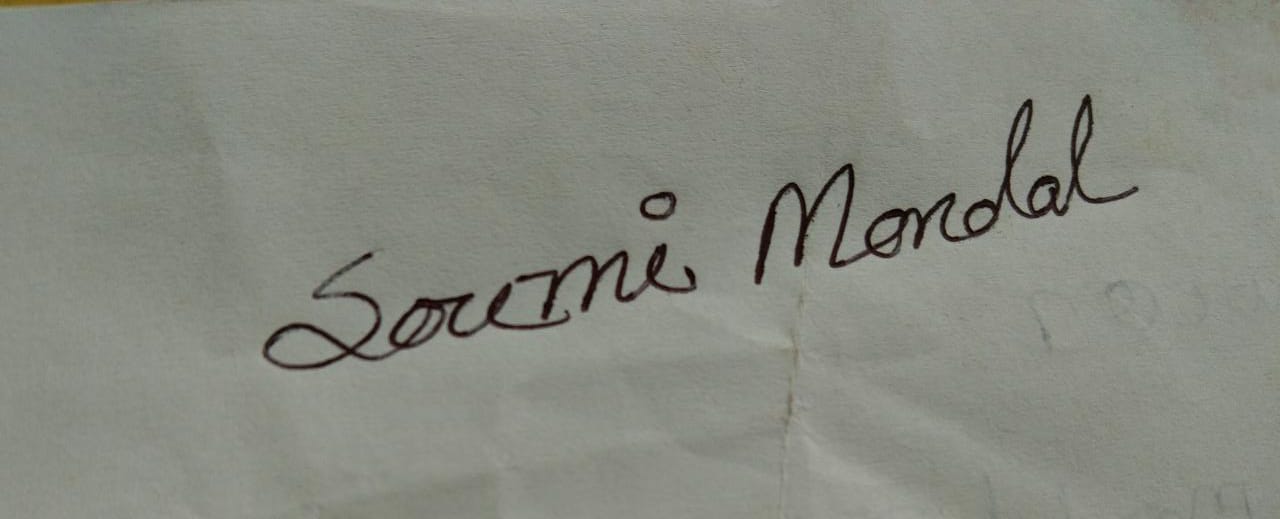 Soumi Mondal